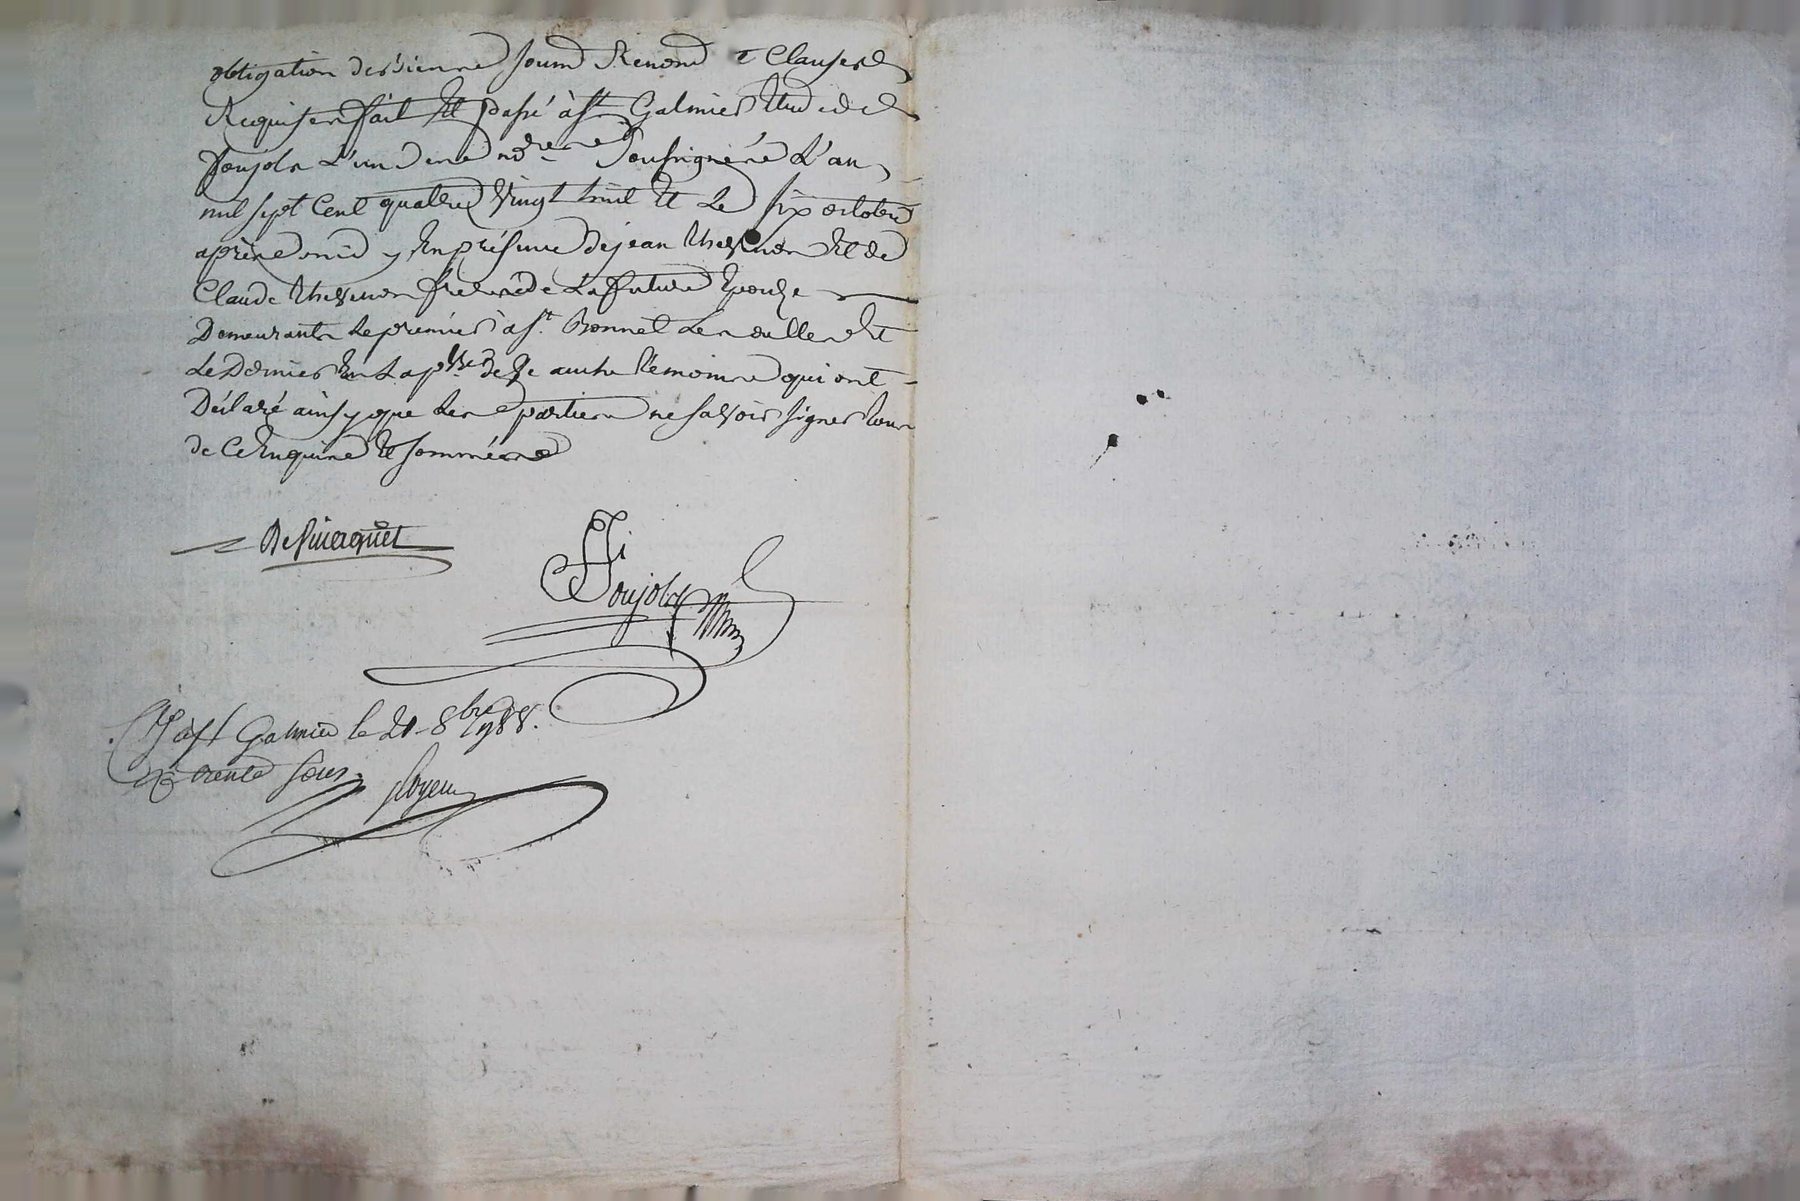 obligation des biens soum Renond & Clauses
Requises fait Et passé à St Galmier Etude de
Poujols L'un des nores Soussignés L'an
mil sept Cent quatre Vingt huit Et Le six octobre
après midy En présence de jean Et de
Claude frères de La future Epouze
Demeurants Le premier à St. Bonnet Les oulles Et
Le Dernier En La psse de autre témoins qui ont
Déclaré ainsy que les parties ne savoir signer
de Ce Enquis Et Sommés
Poujols
à St Galmier le 21 8bre 1788.
R trente sous